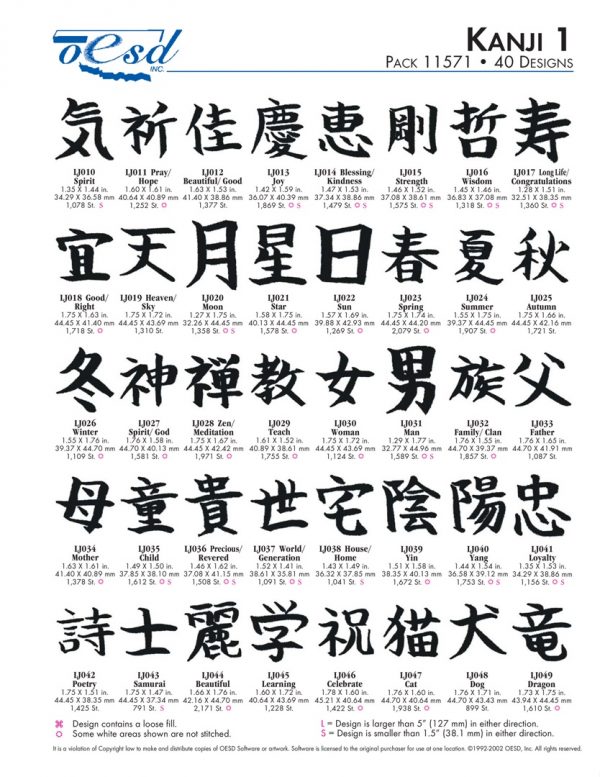 oesd
INC.
KANJI 1
PACK 11571 • 40 DESIGNS
気 祈 佳 慶 恵 剛 哲 寿
IJ010 IJ011 Pray/ IJ012 IJ013 IJ014 Blessing/ IJ015 IJ016 IJ017 Long Life/
Spirit Hope Beautiful/Good Joy Kindness Strength Wisdom Congratulations
1.35 X 1.44 in. 1.60 X 1.61 in. 1.63 X 1.53 in. 1.42 X 1.59 in. 1.47 X 1.53 in. 1.46 X 1.52 in. 1.45 X 1.46 in. 1.28 X 1.51 in.
34.29 X 36.58 mm 40.64 X 40.89 mm 41.40 X 38.86 mm 36.07 X 40.39 mm 37.34 X 38.86 mm 37.08 X 38.61 mm 36.83 X 37.08 mm 32.51 X 38.35 mm
1,078 St. S 1,252 St. 1,377 St. 1,869 St. S 1,479 St. S 1,575 St. S 1,318 St. S 1,360 St. S
宜 天 月 星 日 春 夏 秋
IJ018 Good/ IJ019 Heaven/ IJ020 IJ021 IJ022 IJ023 IJ024 IJ025
Right Sky Moon Star Sun Spring Summer Autumn
1.75 X 1.63 in. 1.75 X 1.72 in. 1.27 X 1.75 in. 1.58 X 1.75 in. 1.57 X 1.69 in. 1.75 X 1.74 in. 1.55 X 1.75 in. 1.75 X 1.66 in.
44.45 X 41.40 mm 44.45 X 43.69 mm 32.26 X 44.45 mm 40.13 X 44.45 mm 39.88 X 42.93 mm 44.45 X 44.20 mm 39.37 X 44.45 mm 44.45 X 42.16 mm
1,718 St. 1,310 St. 1,358 St. S 1,578 St. 1,269 St. 2,079 St. 1,907 St. 1,721 St.
冬 神 禅 教 女 男 族 父
IJ026 IJ027 IJ028 Zen/ IJ029 IJ030 IJ031 IJ032 IJ033
Winter Spirit/God Meditation Teach Woman Man Family/Clan Father
1.55 X 1.76 in. 1.76 X 1.58 in. 1.75 X 1.67 in. 1.61 X 1.52 in. 1.75 X 1.72 in. 1.29 X 1.77 in. 1.76 X 1.55 in. 1.76 X 1.65 in.
39.37 X 44.70 mm 44.70 X 40.13 mm 44.45 X 42.42 mm 40.89 X 38.61 mm 44.45 X 43.69 mm 32.77 X 44.96 mm 44.70 X 39.37 mm 44.70 X 41.91 mm
1,109 St. 1,581 St. 1,971 St. 1,755 St. 1,124 St. 1,589 St. S 1,857 St. 1,087 St.
母 童 貴 世 宅 陰 陽 忠
IJ034 IJ035 IJ036 Precious/ IJ037 World/ IJ038 House/ IJ039 IJ040 IJ041
Mother Child Revered Generation Home Yin Yang Loyalty
1.63 X 1.61 in. 1.49 X 1.50 in. 1.46 X 1.62 in. 1.52 X 1.41 in. 1.43 X 1.49 in. 1.51 X 1.58 in. 1.44 X 1.54 in. 1.35 X 1.53 in.
41.40 X 40.89 mm 37.85 X 38.10 mm 37.08 X 41.15 mm 38.61 X 35.81 mm 36.32 X 37.85 mm 38.35 X 40.13 mm 36.58 X 39.12 mm 34.29 X 38.86 mm
1,378 St. 1,612 St. S 1,508 St. S 1,091 St. S 1,041 St. S 1,672 St. 1,753 St. S 1,156 St. S
詩 士 麗 学 祝 猫 犬 竜
IJ042 IJ043 IJ044 IJ045 IJ046 IJ047 IJ048 IJ049
Poetry Samurai Beautiful Learning Celebrate Cat Dog Dragon
1.75 X 1.51 in. 1.75 X 1.47 in. 1.66 X 1.76 in. 1.60 X 1.72 in. 1.78 X 1.60 in. 1.76 X 1.60 in. 1.76 X 1.71 in. 1.73 X 1.75 in.
44.45 X 38.35 mm 44.45 X 37.34 mm 42.16 X 44.70 mm 40.64 X 43.69 mm 45.21 X 40.64 mm 44.70 X 40.64 mm 44.70 X 43.43 mm 43.94 X 44.45 mm
1,425 St. 791 St. S 2,171 St. 1,228 St. 1,422 St. 1,938 St. 899 St. 1,610 St.
Design contains a loose fill. L = Design is larger than 5" (127 mm) in either direction.
Some white areas shown are not stitched. S = Design is smaller than 1.5" (38.1 mm) in either direction.
It is a violation of Copyright law to make and distribute copies of OESD Software or artwork. Software is licensed to the original purchaser for use at one location. ©1992-2002 OESD, Inc. All rights reserved.